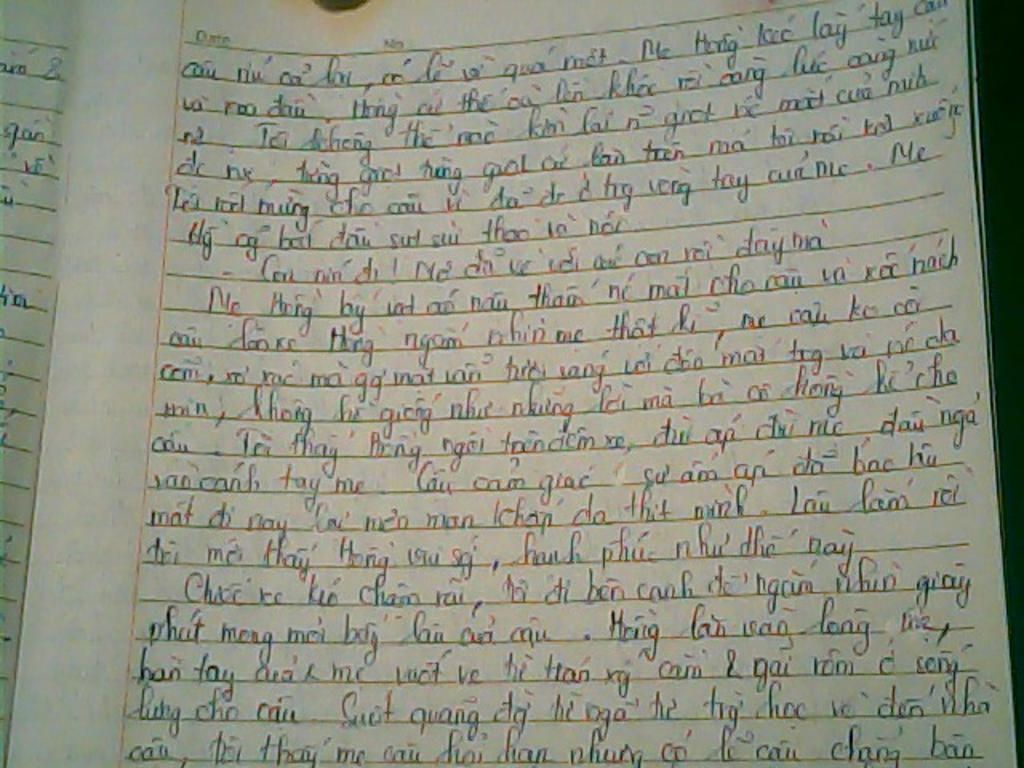 Date No
cậu ríu cả lại, có lẽ vì quá mệt. Mẹ Hồng kéo lấy tay cậu
và xoa đầu, Hồng cứ thế oà lên khóc rồi càng lúc càng nức
nở. Tôi không thể nào kìm lại nổi giọt nước mắt của mình
đc nx, từng giọt từng giọt cứ lăn trên má tôi rồi rơi xuống
Tôi rất mừng cho cậu vì đã đc ở trg vòng tay của mẹ. Mẹ
Hồg cg bắt đầu sụt sùi theo và nói:
- Con nín đi! Mẹ đã về với các con rồi đây mà
Mẹ Hồng lấy vạt áo nâu thấm nc mắt cho cậu và xốc nách
cậu lên xe Hồng ngắm nhìn mẹ thật kĩ, mẹ cậu ko còi
cõm, xơ xác mà gg mặt vẫn tươi sáng với đôi mắt trg và nc da
mịn, không hề giống như những lời mà bà cô Hồng kể cho
cậu. Tôi thấy Hồng ngồi trên đệm xe, đùi áp đùi mẹ, đầu ngả
vào cánh tay mẹ. Cậu cảm giác sự ấm áp đã bao lâu
mất đi nay lại mơn man khắp da thịt mình. Lâu lắm rồi
tôi mới thấy Hồng vui sg, hạnh phúc như thế này
Chiếc xe kéo chậm rãi, tôi đi bên cạnh để ngắm nhìn giây
phút mong mỏi bấy lâu của cậu. Hồng lăn vào lòng mẹ,
bàn tay của mẹ vuốt ve từ trán xg cằm & gãi rôm ở sống
lưng cho cậu. Suốt quãng đg từ ngã tư trg học về đến nhà
cậu, tôi thấy mẹ cậu hỏi han nhưng có lẽ cậu chẳng bận